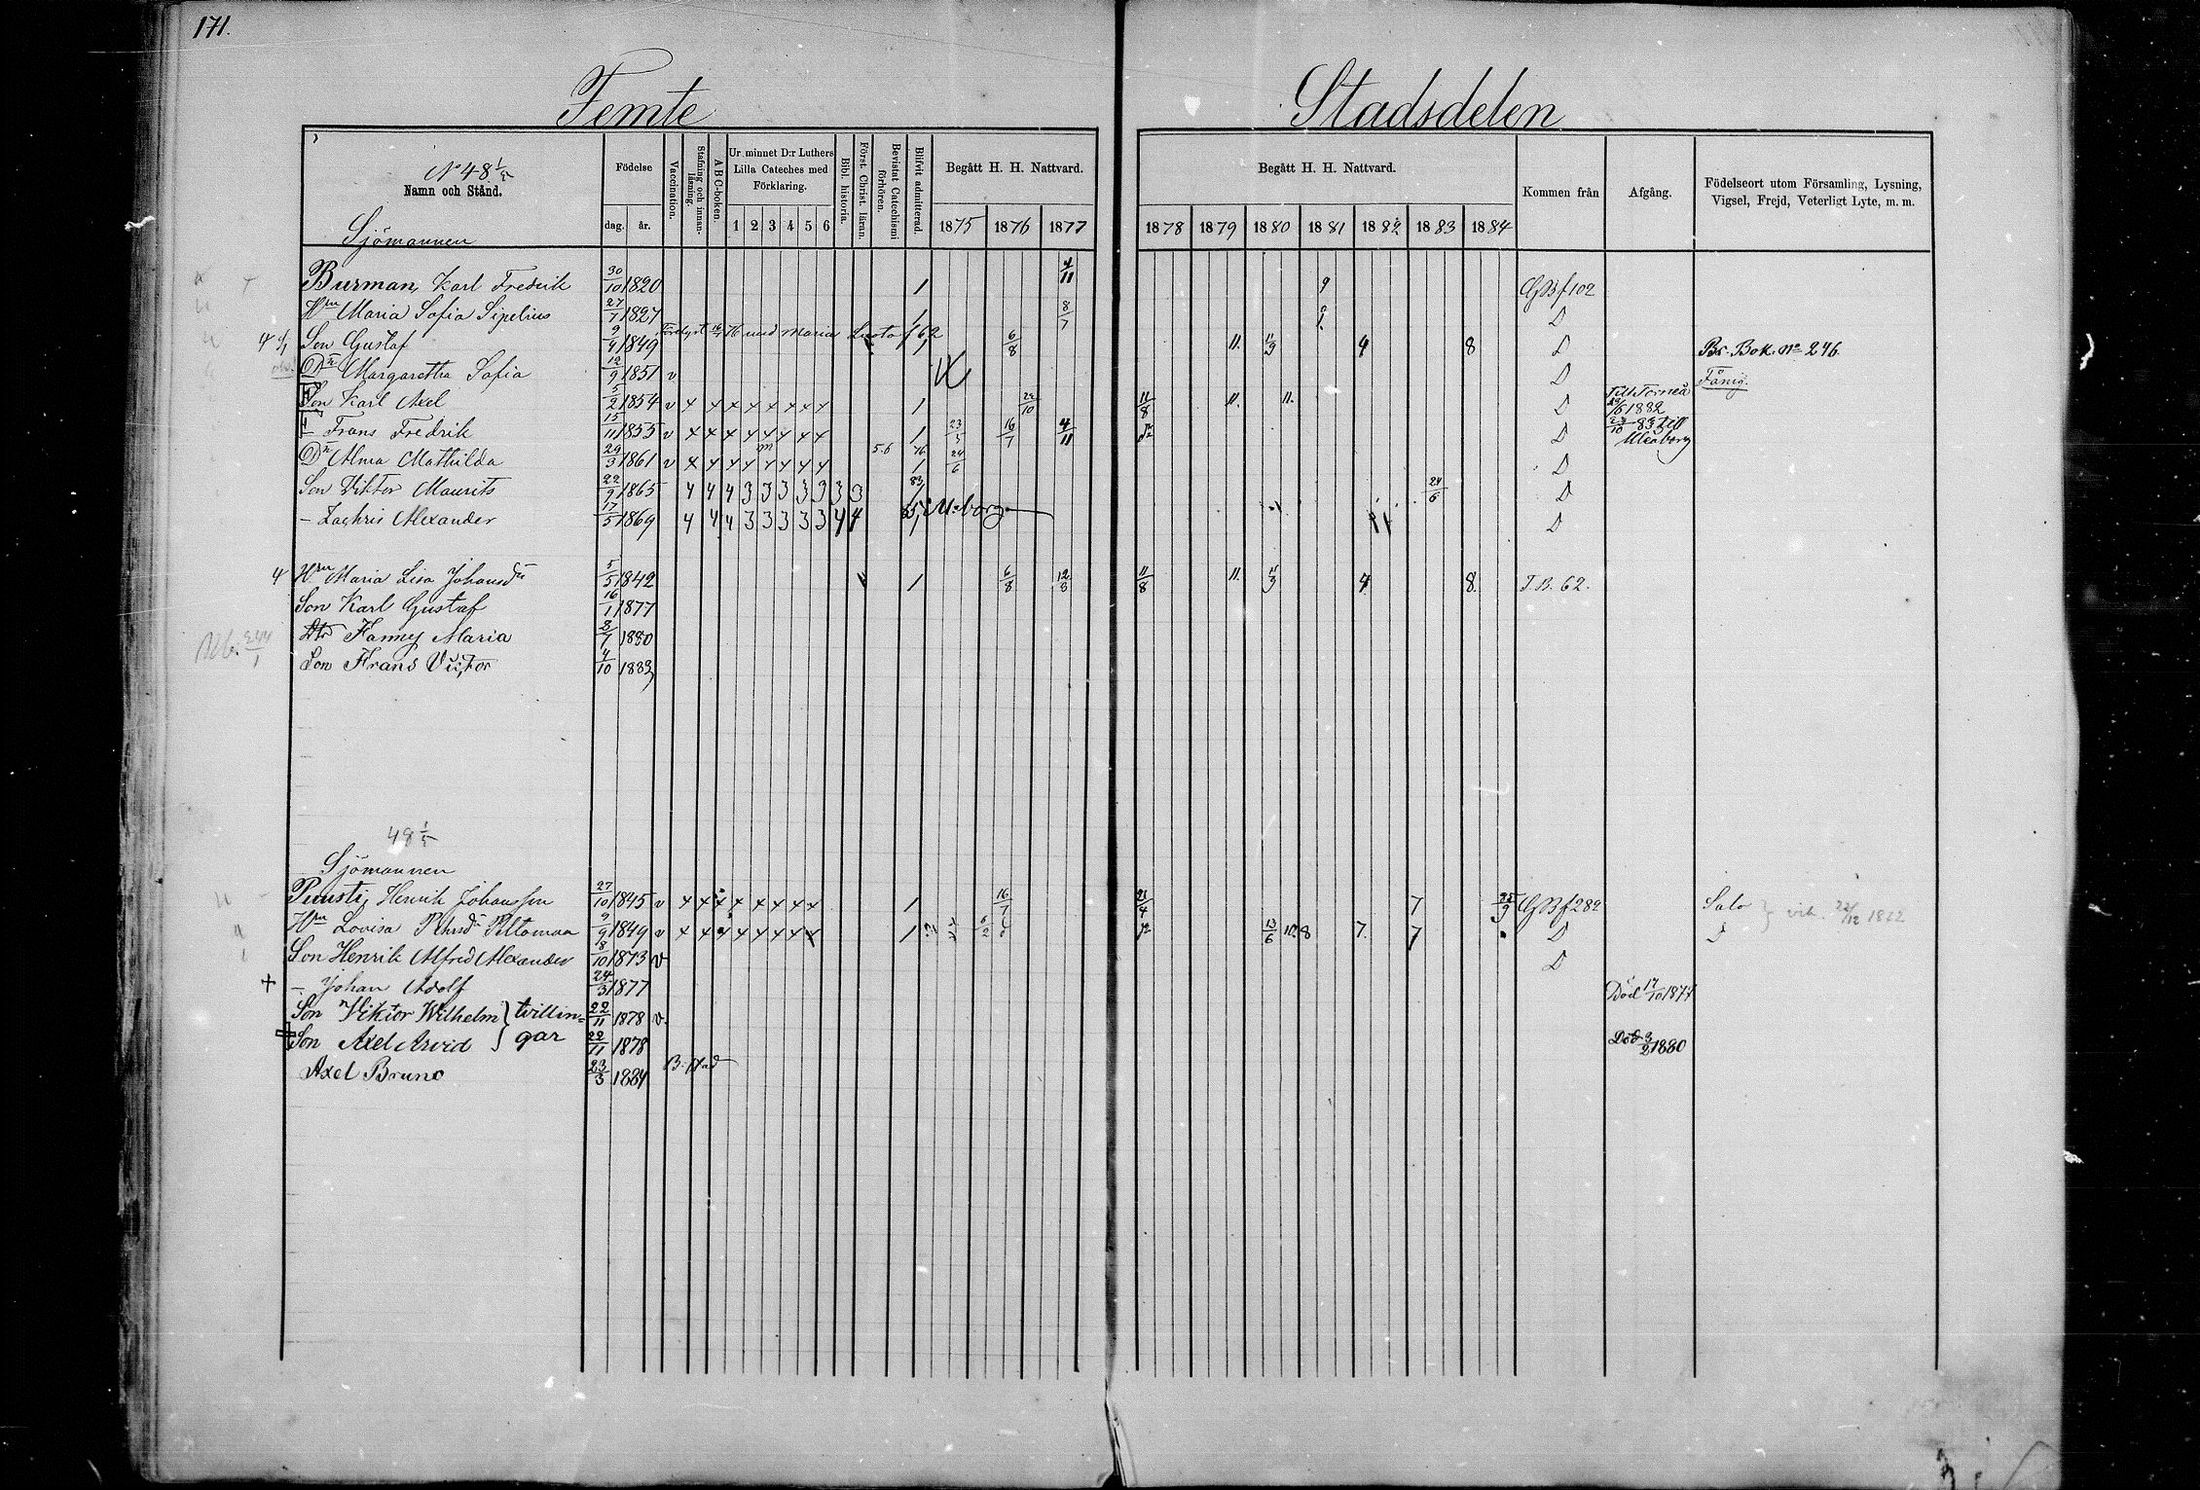 171.
Femte Stadsdelen
No 48 1/5
Namn och Stånd.
Födelse
dag. år.
Vaccination.
Stafning och innanläsning.
A B C-boken.
Ur minnet D:r Luthers Lilla Cateches med Förklaring.
1 2 3 4 5 6
Bibl. historia.
Först. Christ. läran.
Bevistat Catechismi förhören.
Blifvit admitterad.
Begått H. H. Nattvard.
1875 1876 1877
Begått H. H. Nattvard.
1878 1879 1880 1881 1882 1883 1884
Kommen från
Afgång.
Födelseort utom Församling, Lysning, Vigsel, Frejd, Veterligt Lyte, m. m.
Sjömannen
Burman, Karl Fredrik 30/10 1820 1 4/11 9 GBf 102
Hru Maria Sofia Sipelius 27/7 1827 1 8/7 D
Son Gustaf 9/4 1849 med Maria f 62 1 6/8 11. 11/3 4 8 D Br. Bok. No 246.
Dr Margaretha Sofia 12/9 1851 v D Fånig.
Son Karl Axel 5/2 1854 v x x x x x x x x 1 22/10 11/8 11. 11. D Till Torneå 1882
— Frans Fredrik 15/11 1855 v x x x x x x x x 1 23/5 16/7 4/11 D 23/10 83 till Uleåborg
Dr Alma Mathilda 29/3 1861 v x x x x x x x x 5.6 76 1 24/6 D
Son Viktor Maurits 22/9 1865 4 4 4 3 3 3 3 3 3 3 83 1 24/6 D
– Zachris Alexander 17/5 1869 4 4 4 3 3 3 3 3 4 4 85 1 D
4 Hru Maria Lisa Johansdr 5/5 1842 1 6/8 12/8 11/8 11. 11/3 4 8. T.B. 62.
Son Karl Gustaf 16/1 1877
Dtr Fanny Maria 8/7 1880
Son Frans Victor 4/10 1883
48 1/5
Sjömannen
Puusti, Henrik Johansson 27/10 1845 v x x x x x x x x 1 16/7 21/4 7 GBf 282 Salo
Hru Lovisa Petersdr Peltomaa 9/9 1849 v x x x x x x x x 1 13/6 10. 8 7. 7 D D
Son Henrik Alfred Alexander 8/10 1873 v D
+ – Johan Adolf 24/3 1877 Död 17/10 1877
Son Viktor Wilhelm } tvillin= 22/11 1878 v.
Son Axel Arvid } gar 22/11 1878 Död 3/2 1880
Axel Bruno 23/3 1884